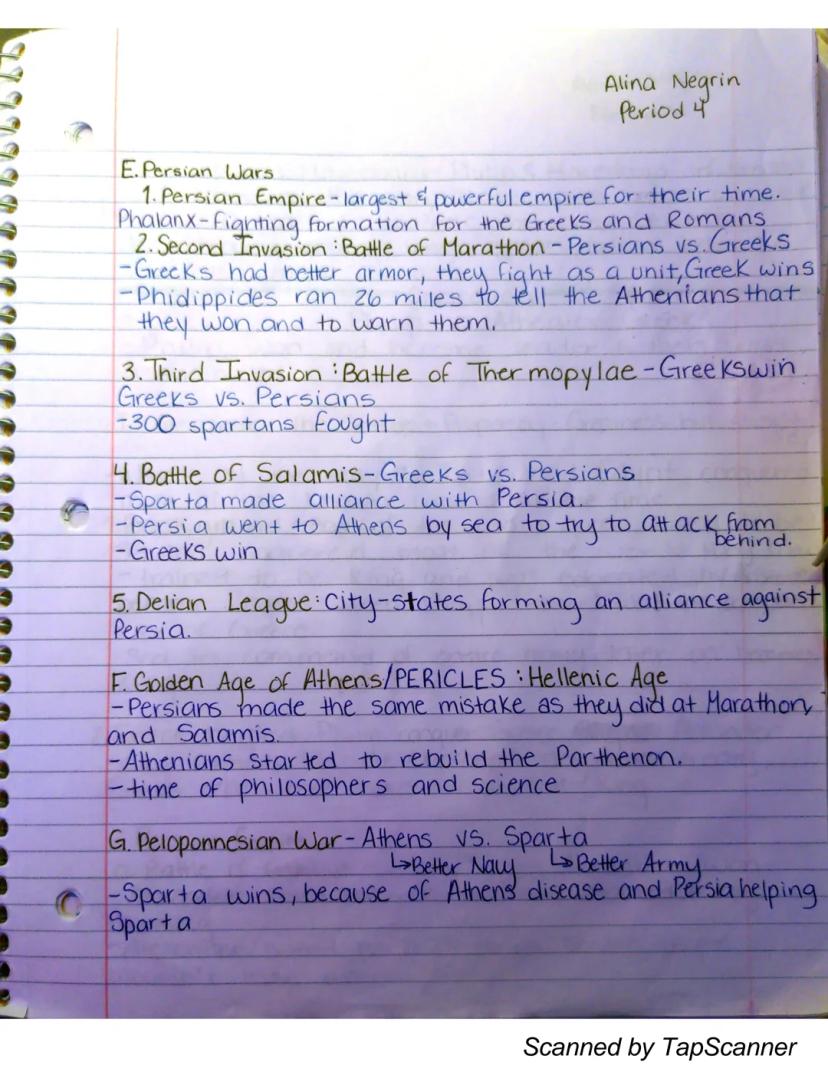 Alina Negrin
Period 4
E. Persian Wars
1. Persian Empire - largest & powerful empire for their time.
Phalanx - Fighting formation for the Greeks and Romans
2. Second Invasion : Battle of Marathon - Persians vs. Greeks
- Greeks had better armor, they fight as a unit, Greek wins
- Phidippides ran 26 miles to tell the Athenians that
they won and to warn them.
3. Third Invasion : Battle of Thermopylae - Greeks win
Greeks vs. Persians
- 300 spartans fought
4. Battle of Salamis - Greeks vs. Persians
- Sparta made alliance with Persia.
- Persia went to Athens by sea to try to attack from
behind.
- Greeks win
5. Delian League : City-states forming an alliance against
Persia.
F. Golden Age of Athens/PERICLES : Hellenic Age
- Persians made the same mistake as they did at Marathon,
and Salamis.
- Athenians started to rebuild the Parthenon.
- time of philosophers and science
G. Peloponnesian War - Athens vs. Sparta
↳Better Navy ↳Better Army
- Sparta wins, because of Athens disease and Persia helping
Sparta
Scanned by TapScanner